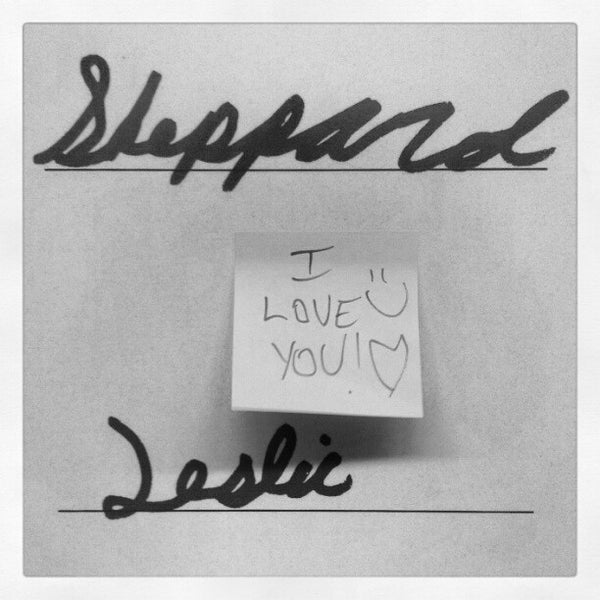 Sheppard
I
LOVE
YOU!
Leslie